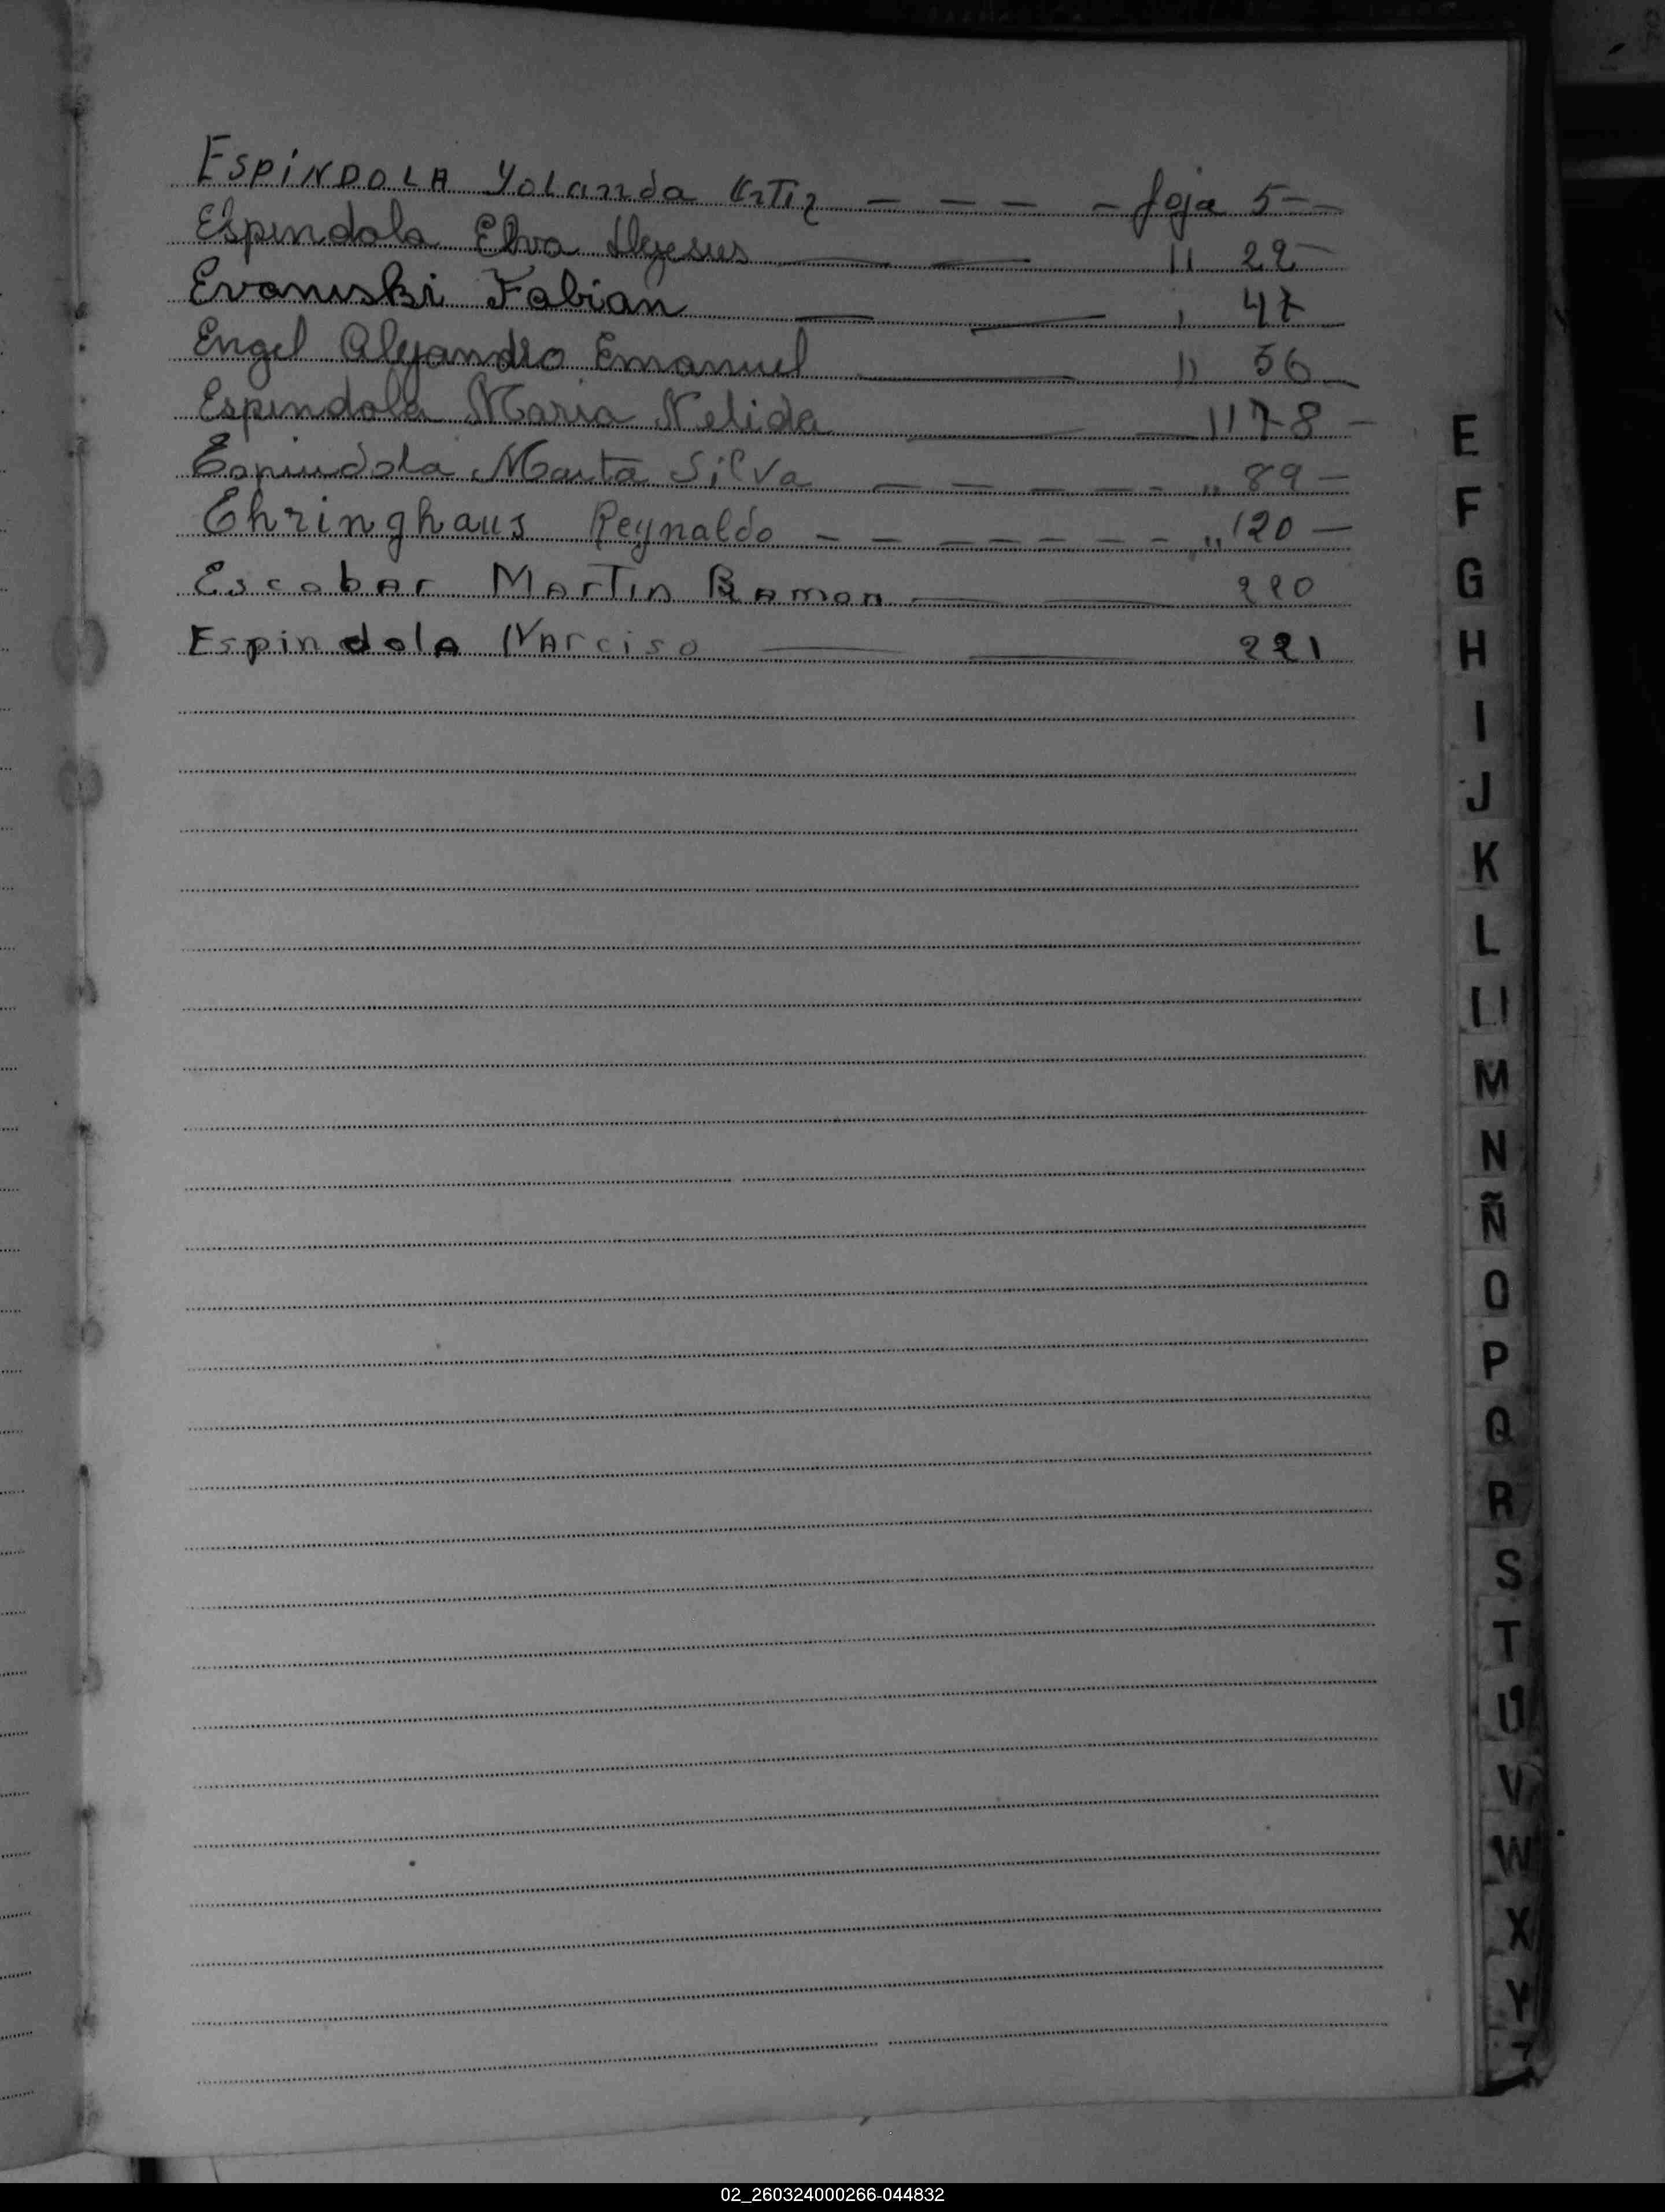 ESPINDOLA Yolanda Ortiz — — — — foja 5 —
Espindola Elva Dejesus — — " 22 —
Evaniski Fabian — — , 47
Engel Alejandro Emanuel — " 56 —
Espindola Maria Nelida — — " 78 —
Espindola Marta Silva — — — — - " 89 —
Ehringhaus Reynaldo — — — — — — — - " 120 —
Escobar Martin Ramon — — 220
Espindola Narciso — — 221
E
F
G
H
I
J
K
L
M
N
Ñ
O
P
Q
R
S
T
U
V
W
X
Y
02_260324000266-044832